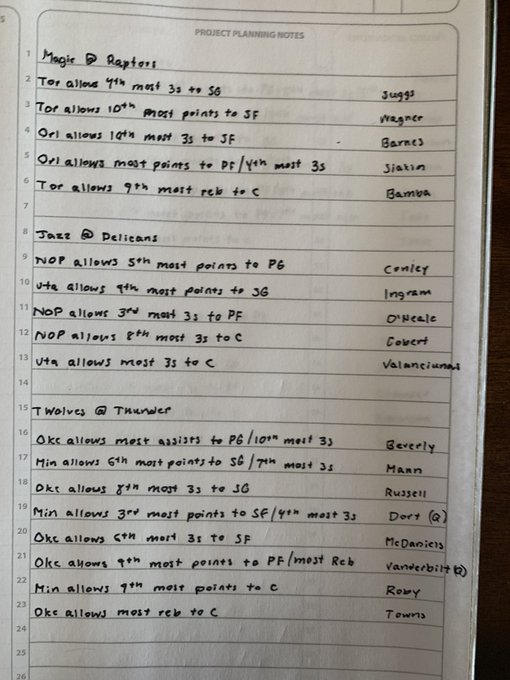 PROJECT PLANNING NOTES
1 Magic @ Raptors
2 Tor allows 4th most 3s to SG Suggs
3 Tor allows 10th most points to SF Wagner
4 Orl allows 10th most 3s to SF Barnes
5 Orl allows most points to PF/4th most 3s Siakim
6 Tor allows 9th most reb to C Bamba
7
8 Jazz @ Pelicans
9 NOP allows 5th most points to PG Conley
10 Uta allows 9th most points to SG Ingram
11 NOP allows 3rd most 3s to PF O'Neale
12 NOP allows 8th most 3s to C Gobert
13 Uta allows most 3s to C Valanciunas
14
15 TWolves @ Thunder
16 Okc allows most assists to PG/10th most 3s Beverly
17 Min allows 6th most points to SG/7th most 3s Mann
18 Okc allows 8th most 3s to SG Russell
19 Min allows 3rd most points to SF/4th most 3s Dort (Q)
20 Okc allows 6th most 3s to SF McDaniels
21 Okc allows 9th most points to PF/most Reb Vanderbilt (Q)
22 Min allows 9th most points to C Roby
23 Okc allows most reb to C Towns
24
25
26